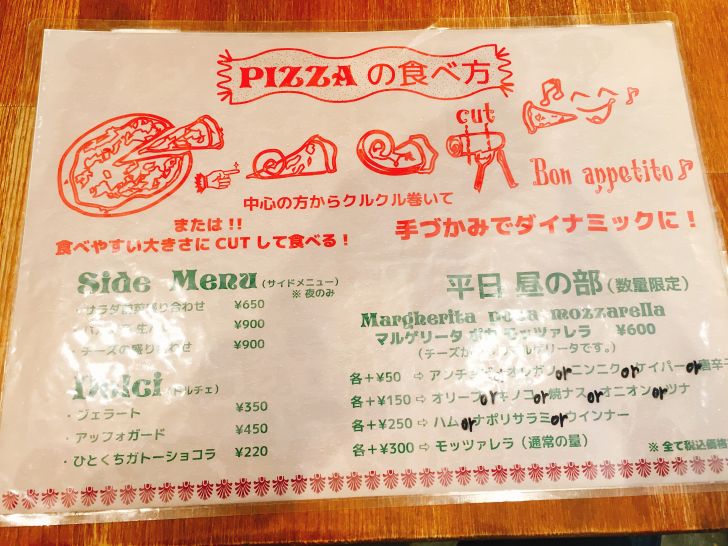 PIZZA の食べ方
cut
Bon appetito♪
中心の方からクルクル巻いて
または!!
食べやすい大きさに CUT して食べる!
手づかみでダイナミックに!
Side Menu (サイドメニュー)
※ 夜のみ
・サラダ 盛り合わせ ¥650
生 ¥900
・チーズの盛り合わせ ¥900
Dolci (ドルチェ)
・ジェラート ¥350
・アッフォガード ¥450
・ひとくちガトーショコラ ¥220
平日 昼の部 (数量限定)
Margherita poca mozzarella
マルゲリータ ポカ モッツァレラ ¥600
(チーズが マルゲリータです。)
各+¥50 ⇨ アンチョビorオレガノorニンニクorケイパーor唐辛子
各+¥150 ⇨ オリーブorキノコor焼ナスorオニオンorツナ
各+¥250 ⇨ ハムorナポリサラミorウインナー
各+¥300 ⇨ モッツァレラ (通常の量)
※ 全て税込価格